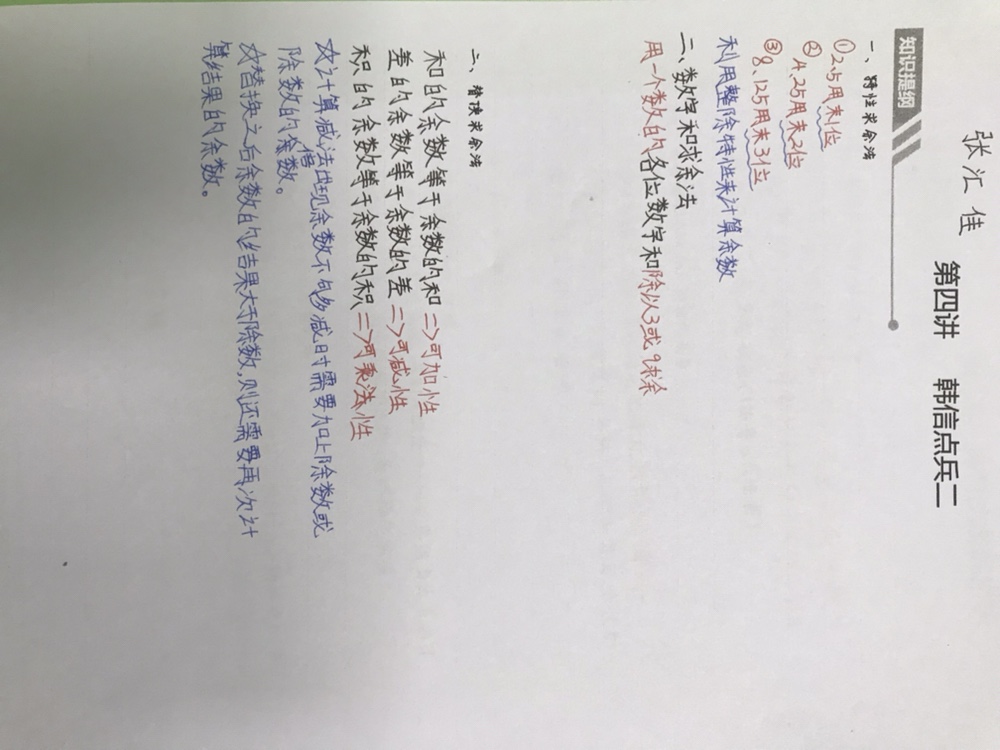 张汇佳
第四讲 韩信点兵二
知识提纲
一、特性求余法
①2.5用末1位
②4.25用末2位
③8.125用末3位
利用整除特性来计算余数
二、数字和求余法
用一个数的各位数字和除以3或9求余
二、替换求余法
和的余数等于余数的和=>可加性
差的余数等于余数的差=>可减性
积的余数等于余数的积=>可乘法性
文计算减法出现余数不够减时需要加上除数或
除数的倍数。
文替换之后余数的结果大于除数,则还需要再次计
算结果的余数。